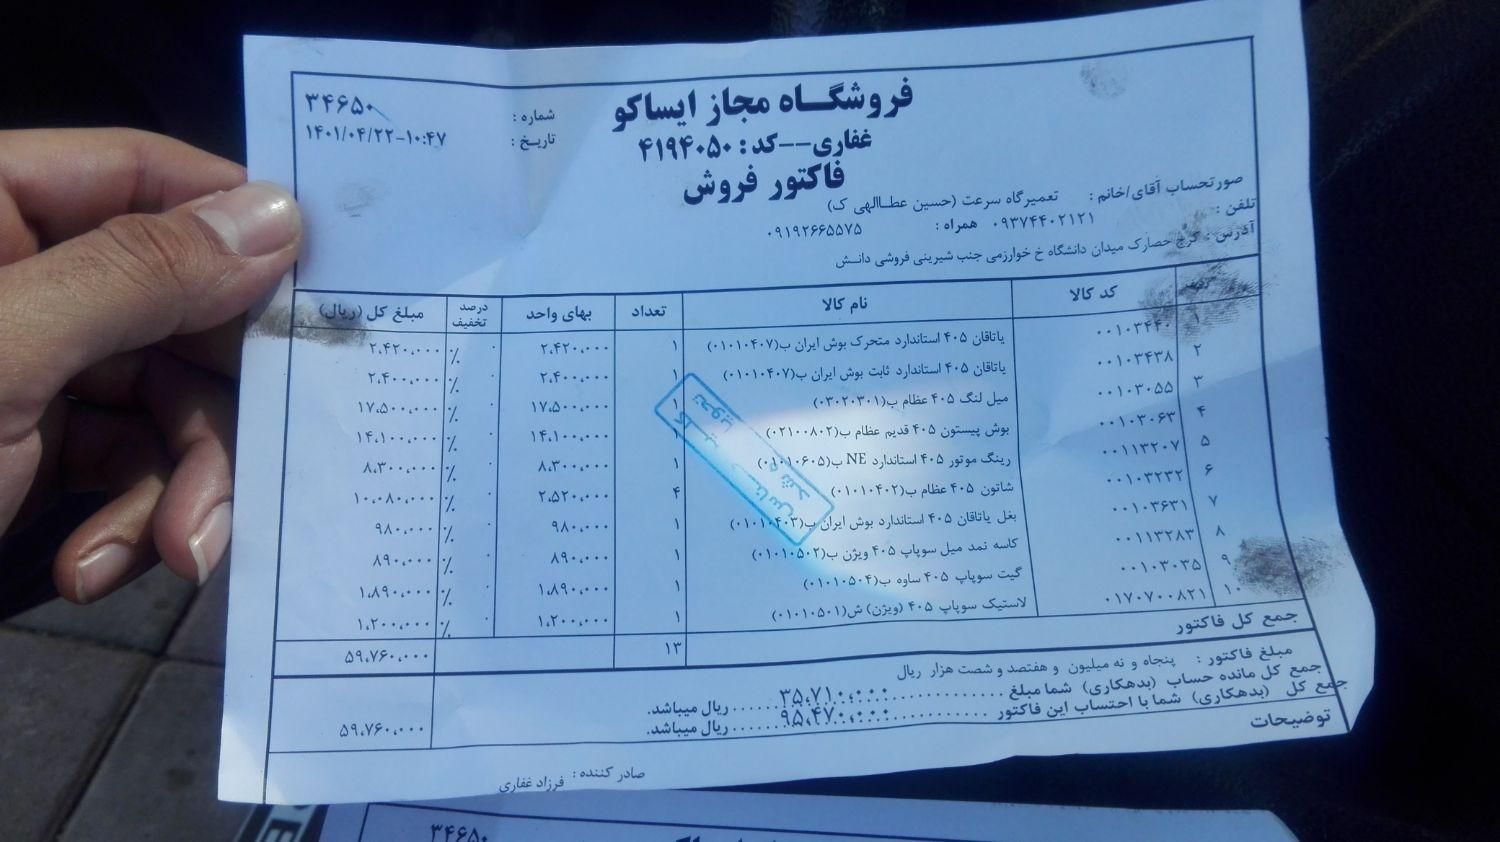 فروشگاه مجاز ایساکو
غفاری--کد: ۴۱۹۴۰۵۰
فاکتور فروش
شماره : ۳۴۶۵۰
تاریخ : ۱۴۰۱/۰۴/۲۲-۱۰:۴۷
صورتحساب آقای/خانم : تعمیرگاه سرعت (حسین عطاالهی ک)
تلفن : ۰۹۳۷۴۴۰۲۱۲۱ همراه : ۰۹۱۹۲۶۶۵۵۷۵
آدرس : کرج حصارک میدان دانشگاه خ خوارزمی جنب شیرینی فروشی دانش
ردیف کد کالا نام کالا تعداد بهای واحد درصد تخفیف مبلغ کل (ریال)
۱ ۰۰۱۰۳۴۴۰ یاتاقان ۴۰۵ استاندارد متحرک بوش ایران ب(۰۱۰۱۰۴۰۷) ۱ ۲،۴۲۰،۰۰۰ ۰ ٪ ۲،۴۲۰،۰۰۰
۲ ۰۰۱۰۳۴۳۸ یاتاقان ۴۰۵ استاندارد ثابت بوش ایران ب(۰۱۰۱۰۴۰۷) ۱ ۲،۴۰۰،۰۰۰ ۰ ٪ ۲،۴۰۰،۰۰۰
۳ ۰۰۱۰۳۰۵۵ میل لنگ ۴۰۵ عظام ب(۰۳۰۲۰۳۰۱) ۱ ۱۷،۵۰۰،۰۰۰ ۰ ٪ ۱۷،۵۰۰،۰۰۰
۴ ۰۰۱۰۳۰۶۳ بوش پیستون ۴۰۵ قدیم عظام ب(۰۲۱۰۰۸۰۲) ۱ ۱۴،۱۰۰،۰۰۰ ۰ ٪ ۱۴،۱۰۰،۰۰۰
۵ ۰۰۱۱۳۲۰۷ رینگ موتور ۴۰۵ استاندارد NE ب(۰۱۰۱۰۶۰۵) ۱ ۸،۳۰۰،۰۰۰ ۰ ٪ ۸،۳۰۰،۰۰۰
۶ ۰۰۱۰۳۲۳۲ شاتون ۴۰۵ عظام ب(۰۱۰۱۰۴۰۲) ۴ ۲،۵۲۰،۰۰۰ ۰ ٪ ۱۰،۰۸۰،۰۰۰
۷ ۰۰۱۰۳۶۳۱ بغل یاتاقان ۴۰۵ استاندارد بوش ایران ب(۰۱۰۱۰۴۰۳) ۱ ۹۸۰،۰۰۰ ۰ ٪ ۹۸۰،۰۰۰
۸ ۰۰۱۱۳۲۸۳ کاسه نمد میل سوپاپ ۴۰۵ ویژن ب(۰۱۰۱۰۵۰۲) ۱ ۸۹۰،۰۰۰ ۰ ٪ ۸۹۰،۰۰۰
۹ ۰۰۱۰۳۰۳۵ گیت سوپاپ ۴۰۵ ساوه ب(۰۱۰۱۰۵۰۴) ۱ ۱،۸۹۰،۰۰۰ ۰ ٪ ۱،۸۹۰،۰۰۰
۱۰ ۰۱۷۰۷۰۰۸۲۱ لاستیک سوپاپ ۴۰۵ (ویژن) ش(۰۱۰۱۰۵۰۱) ۱ ۱،۲۰۰،۰۰۰ ۰ ٪ ۱،۲۰۰،۰۰۰
جمع کل فاکتور ۱۳ ۵۹،۷۶۰،۰۰۰
مبلغ فاکتور : پنجاه و نه میلیون و هفتصد و شصت هزار ریال
جمع کل مانده حساب (بدهکاری) شما مبلغ ............ ۳۵،۷۱۰،۰۰۰ ...... ریال میباشد.
جمع کل (بدهکاری) شما با احتساب این فاکتور ............ ۹۵،۴۷۰،۰۰۰ ...... ریال میباشد.
۵۹،۷۶۰،۰۰۰
توضیحات
صادر کننده : فرزاد غفاری
تحویل
شد
۳۴۶۵۰